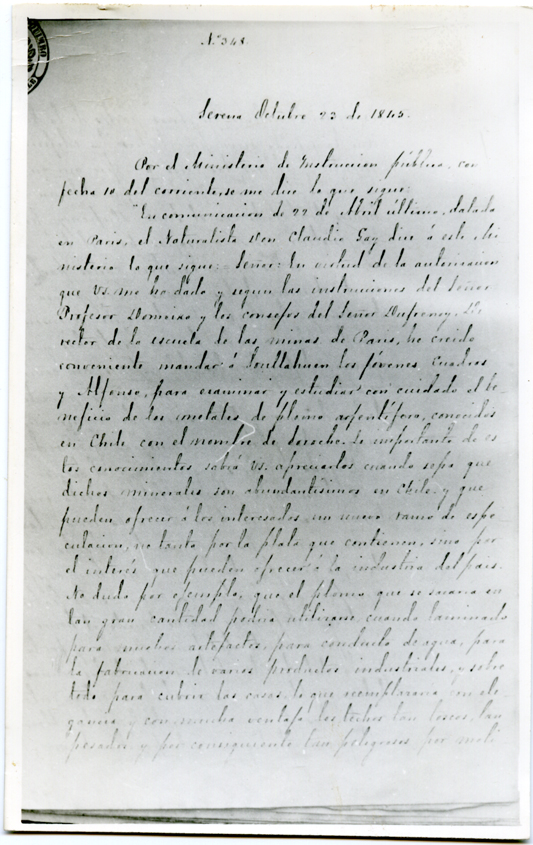 N.º 348.
Serena Octubre 23 de 1845.
Por el Ministerio de Instruccion pública, con
fecha 10 del corriente, se me dice lo que sigue:
"En comunicacion de 22 de Abril último, datada
en Paris, el Naturalista Don Claudio Gay dice á este Mi
nisterio lo que sigue: Señor: En virtud de la autorizacion
que US. me ha dado y segun las instrucciones del Señor
Profesor Domeyko y los consejos del Señor Dufrenoy, Di
rector de la escuela de las minas de Paris, he creido
conveniente mandar á los jóvenes Cuadros
y Alfonso, para examinar y estudiar con cuidado el be
neficio de los metales de plomo arjentífero, conocidos
en Chile con el nombre de soroche. Lo importante de es
tos conocimientos sabrá US. apreciarlos cuando sepa que
dichos minerales son abundantísimos en Chile y que
pueden ofrecer á los interesados un nuevo ramo de espe
culacion, no tanto por la plata que contienen, sino por
el interés que pueden ofrecer á la industria del pais.
No dudo por ejemplo, que el plomo que se sacaria en
tan gran cantidad podria utilizarse, cuando laminado
para muchos artefactos, para conducto de agua, para
la fabricacion de varios productos industriales, y sobre
todo para cubrir las casas, lo que remplazaria con ele
gancia y con mucha ventaja los techos tan toscos, tan
pesados y por consiguiente tan peligrosos por moti